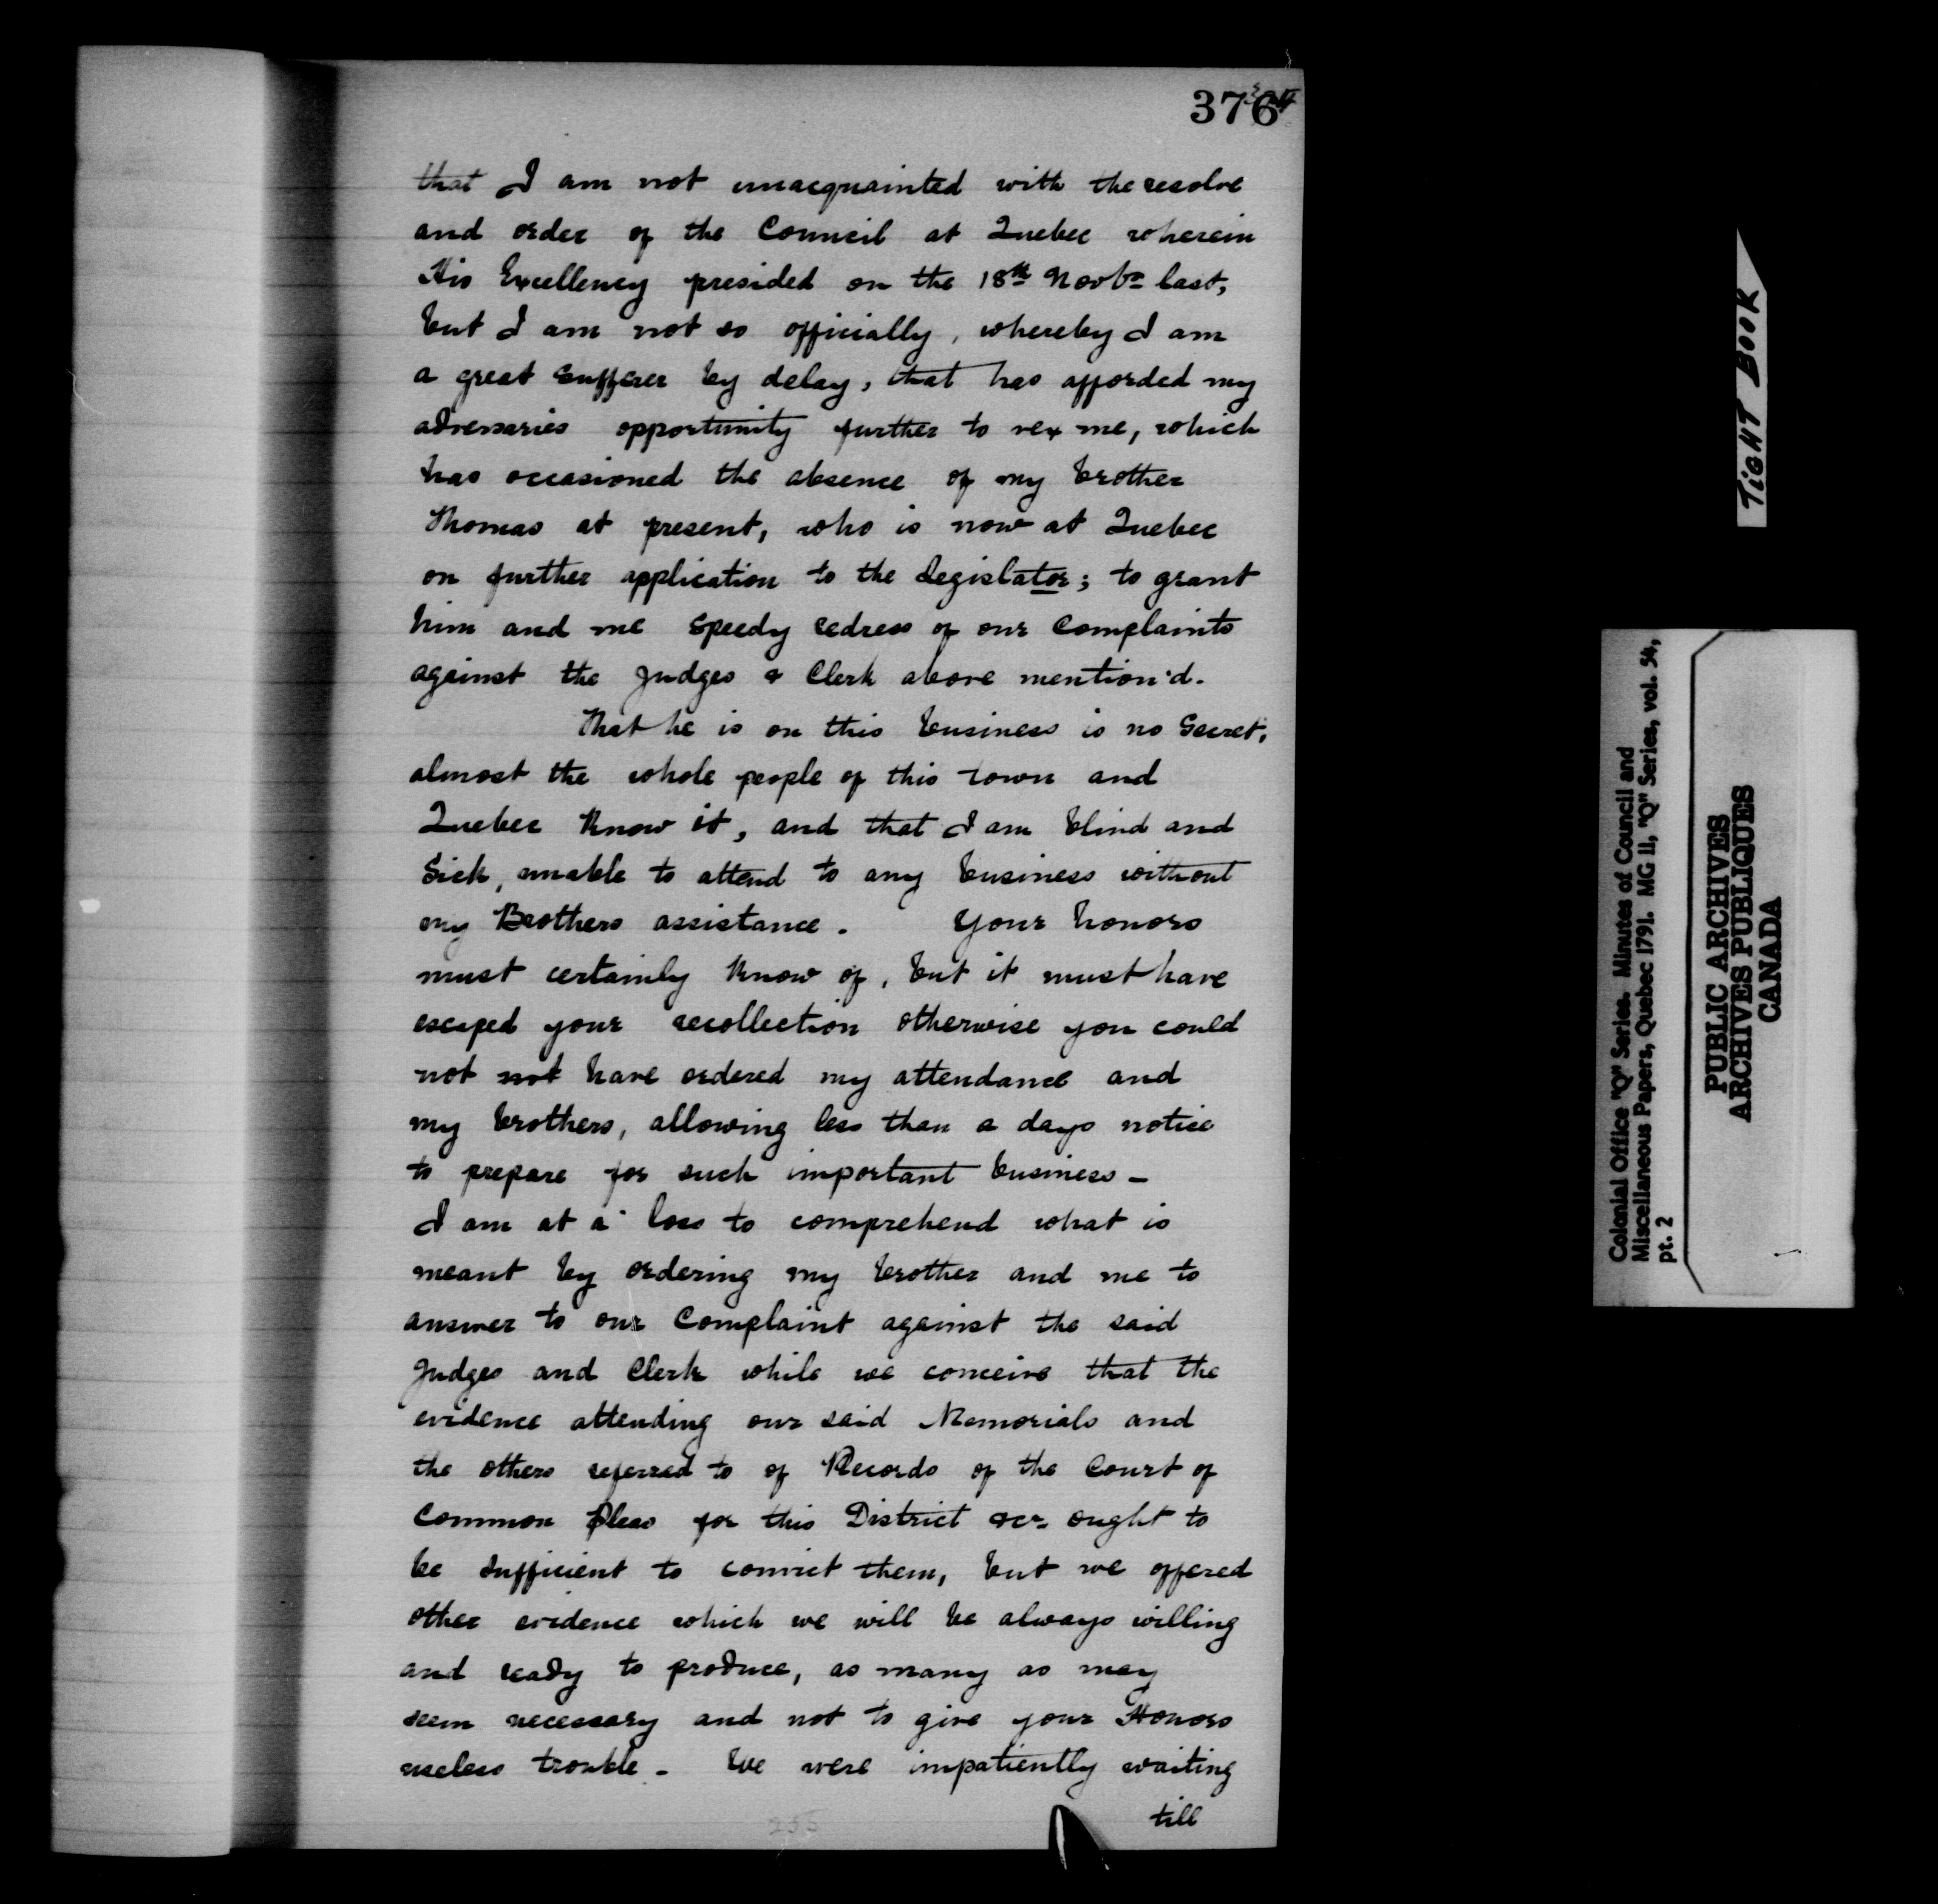 376
that I am not unacquainted with the resolve
and order of the Council at Quebec wherein
His Excellency presided on the 18th Novbr last,
but I am not so officially, whereby I am
a great Sufferer by delay, that has afforded my
adversaries opportunity further to vex me, which
has occasioned the absence of my brother
Thomas at present, who is now at Quebec
on further application to the Legislator; to grant
him and me Speedy redress of our Complaints
against the Judges & Clerk above mention'd.
That he is on this business is no Secret,
almost the whole people of this town and
Quebec Know it, and that I am blind and
Sick, unable to attend to any business without
my Brothers assistance. Your honors
must certainly Know of, but it must have
escaped your recollection otherwise you could
not not have ordered my attendance and
my brothers, allowing less than a days notice
to prepare for such important business -
I am at a loss to comprehend what is
meant by ordering my brother and me to
answer to our Complaint against the said
Judges and Clerk while we conceive that the
evidence attending our said Memorials and
the others referred to of Records of the Court of
Common Pleas for this District &cr ought to
be Sufficient to convict them, but we offered
other evidence which we will be always willing
and ready to produce, as many as may
seem necessary and not to give your Honors
useless trouble - We were impatiently waiting
till
255
TIGHT BOOK
Colonial Office "Q" Series. Minutes of Council and
Miscellaneous Papers, Quebec 1791. MG 11, "Q" Series, vol. 54,
pt. 2
PUBLIC ARCHIVES
ARCHIVES PUBLIQUES
CANADA